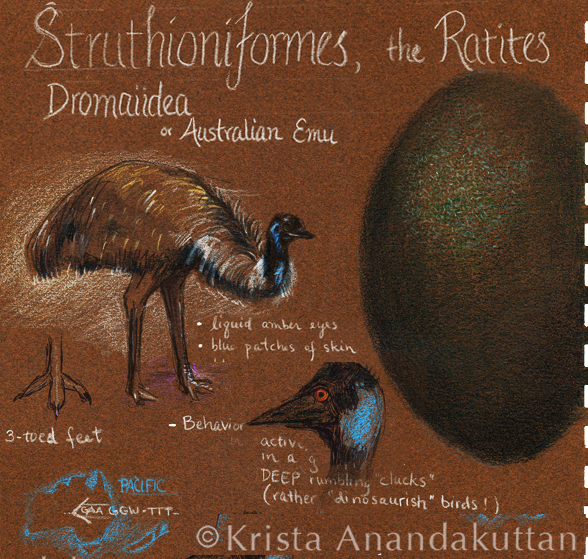 Struthioniformes, the Ratites
Dromaiidea
or Australian Emu
• liquid amber eyes
• blue patches of skin
3-toed feet
- Behavior
active,
in a g
DEEP rumbling "clucks"
(rather "dinosaurish" birds!)
PACIFIC
GAA GGW-TTT
©Krista Anandakuttan